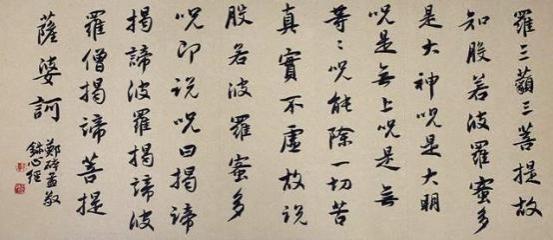 羅三藐三菩提故
知般若波羅蜜多
是大神呪是大明
呪是無上呪是無
等々呪能除一切苦
真實不虛故說
般若波羅蜜多
呪即說呪曰揭諦
揭諦波羅揭諦波
羅僧揭諦菩提
薩婆訶
鄭孟敬
錄心經